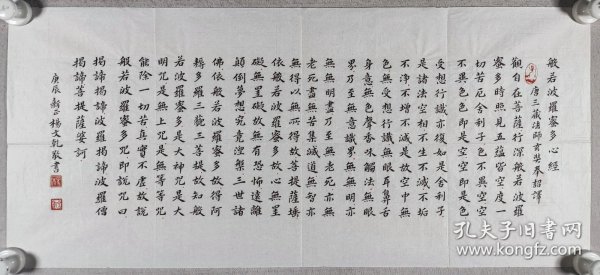 般若波羅蜜多心經
唐三藏法師玄奘奉詔譯
觀自在菩薩行深般若波羅
蜜多時照見五蘊皆空度一
切苦厄舍利子色不異空空
不異色色即是空空即是色
受想行識亦復如是舍利子
是諸法空相不生不滅不垢
不淨不增不減是故空中無
色無受想行識無眼耳鼻舌
身意無色聲香味觸法無眼
界乃至無意識界無無明亦
無無明盡乃至無老死亦無
老死盡無苦集滅道無智亦
無得以無所得故菩提薩埵
依般若波羅蜜多故心無罣
礙無罣礙故無有恐怖遠離
顛倒夢想究竟涅槃三世諸
佛依般若波羅蜜多故得阿
耨多羅三藐三菩提故知般
若波羅蜜多是大神咒是大
明咒是無上咒是無等等咒
能除一切苦真實不虛故說
般若波羅蜜多咒即說咒曰
揭諦揭諦波羅揭諦波羅僧
揭諦菩提薩婆訶
庚辰新正楊文乾敬書
孔夫子旧书网